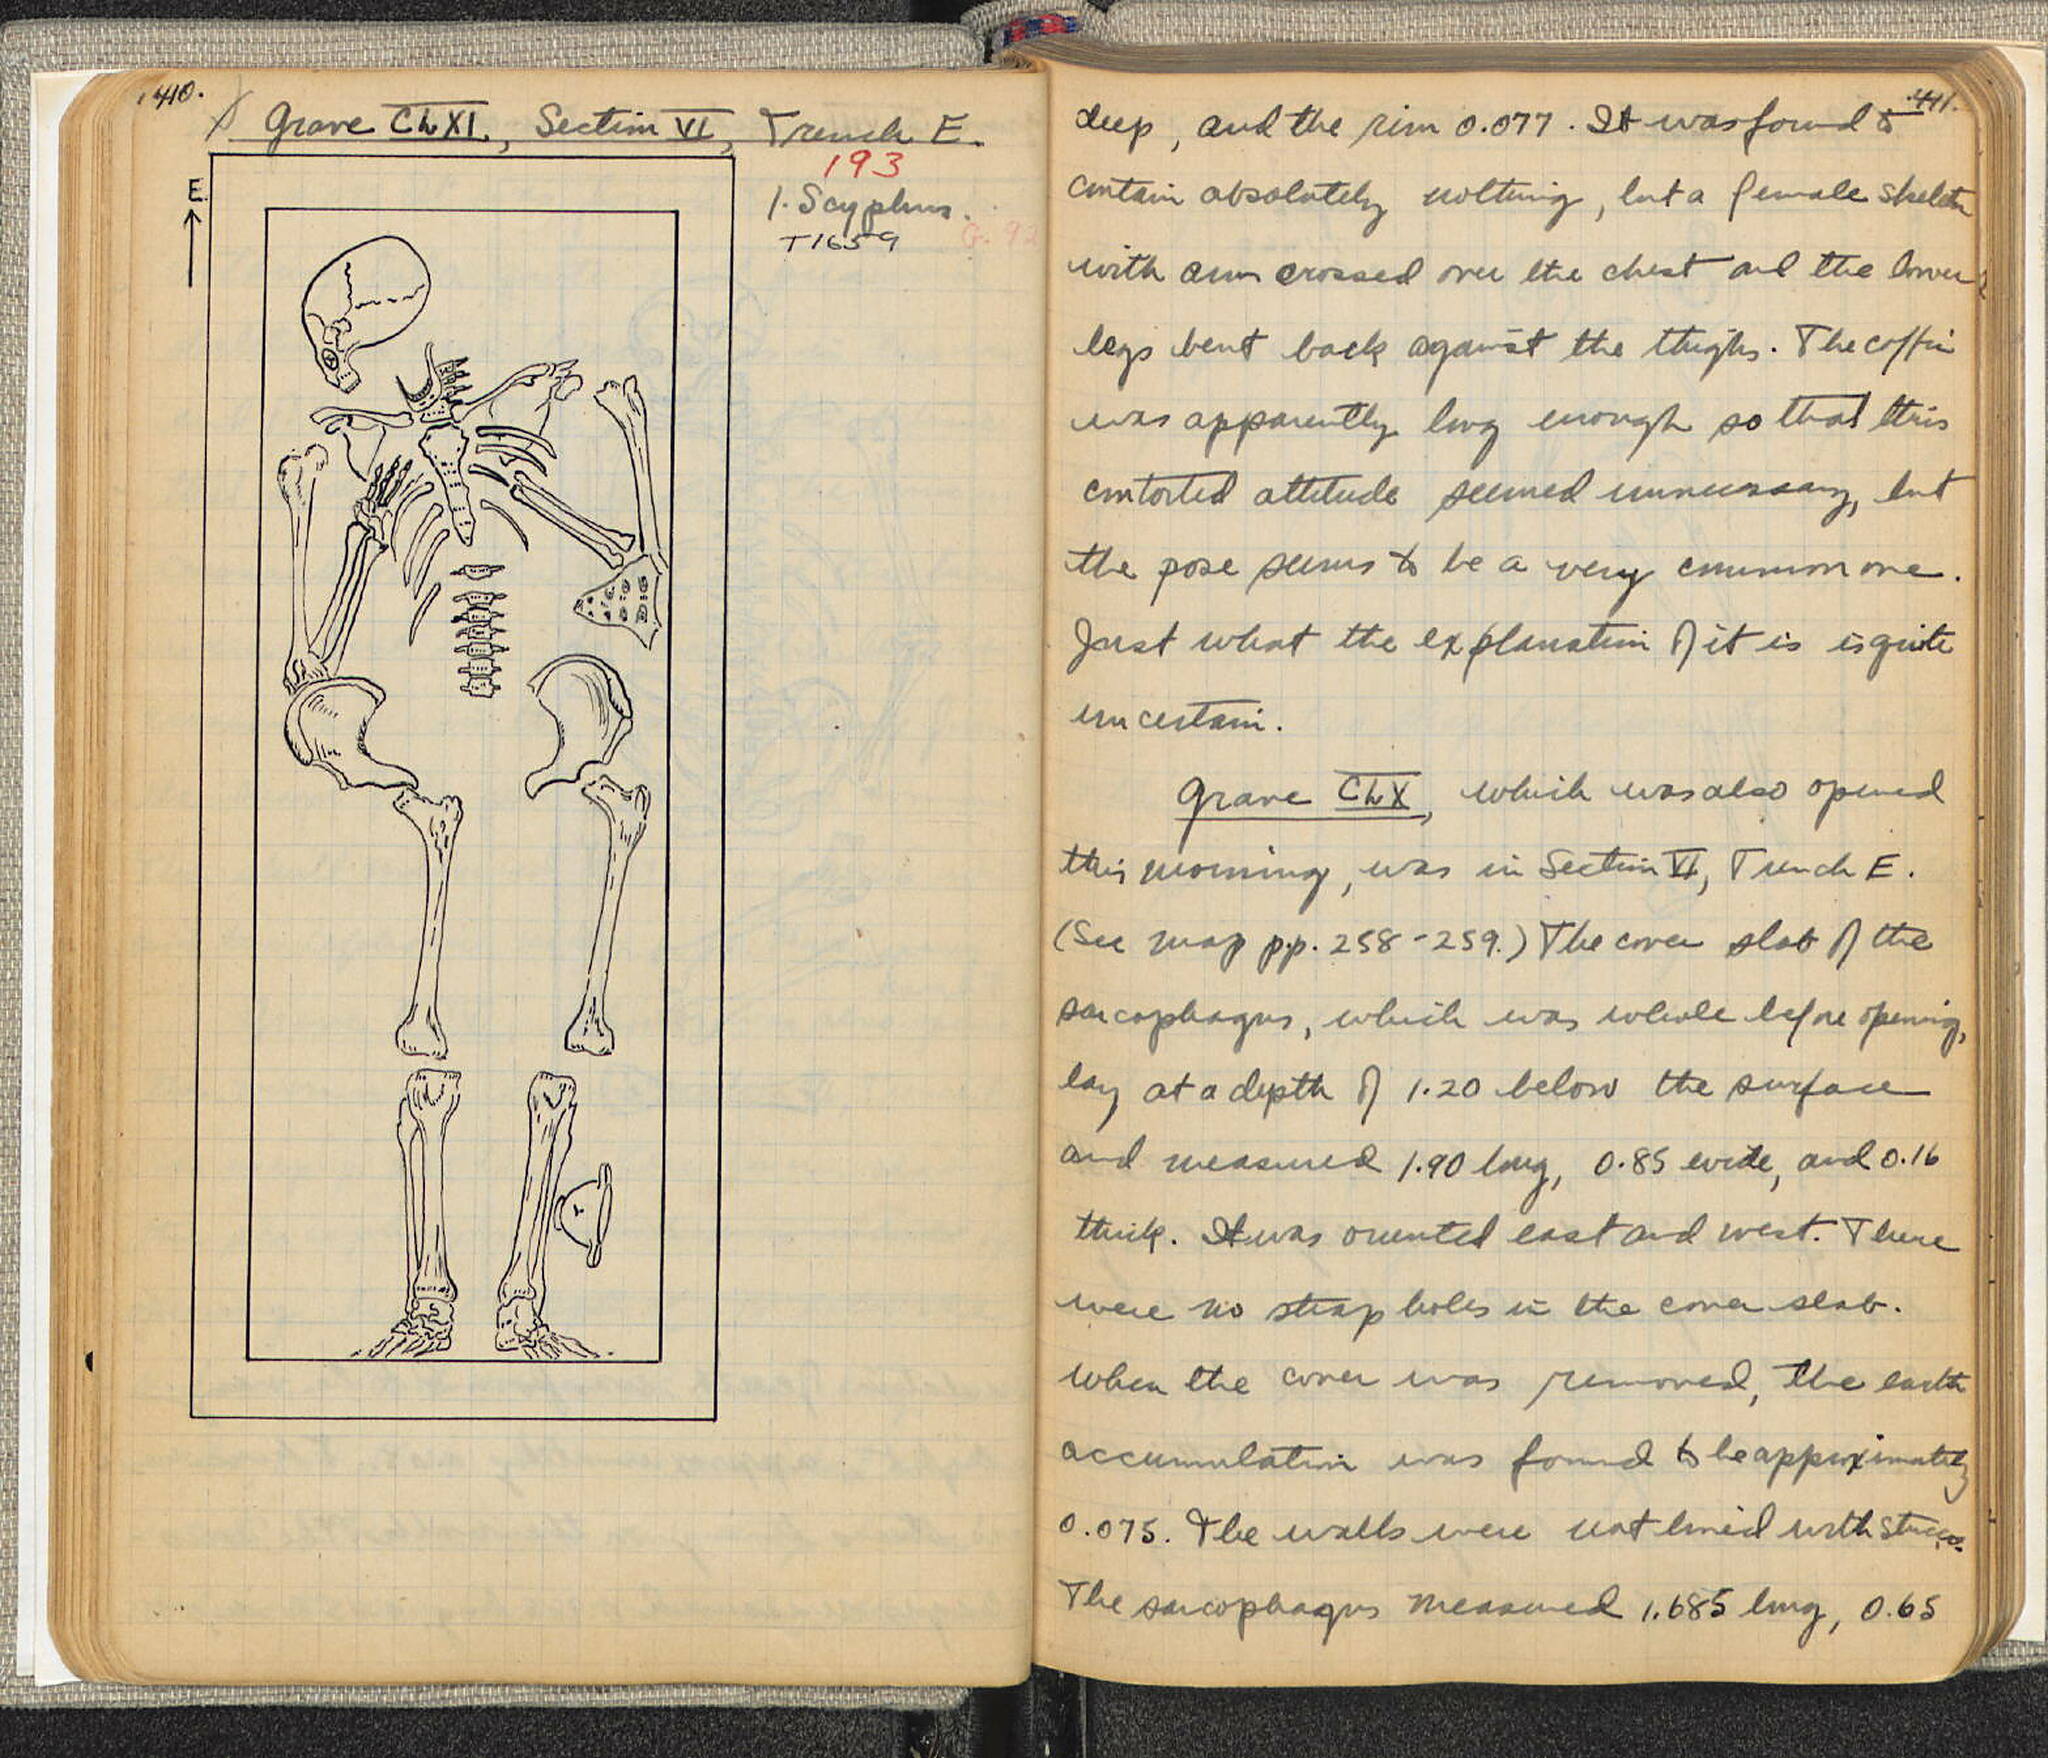 410.
Grave Ch XI, Section VI, Trench E.
193
E.
1. Scyphus.
T1659
G. 92
411.
deep, and the rim 0.077. It was found to
contain absolutely nothing, but a female skeleton
with arms crossed over the chest and the lower
legs bent back against the thighs. The coffin
was apparently long enough so that this
contorted attitude seemed unnecessary, but
the pose seems to be a very common one.
Just what the explanation of it is is quite
uncertain.
Grave Ch X, which was also opened
this morning, was in Section VI, Trench E.
(See map pp. 258-259.) The cover slab of the
sarcophagus, which was whole before opening,
lay at a depth of 1.20 below the surface
and measured 1.90 long, 0.85 wide, and 0.16
thick. It was oriented east and west. There
were no strap holes in the cover slab.
When the cover was removed, the earth
accumulation was found to be approximately
0.075. The walls were not lined with stucco.
The sarcophagus measured 1.685 long, 0.65